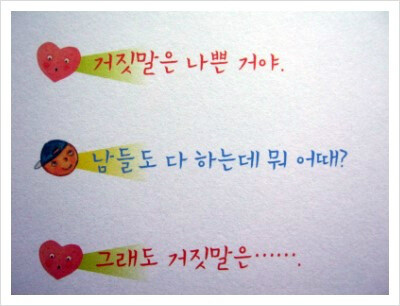 거짓말은 나쁜 거야.
남들도 다 하는데 뭐 어때?
그래도 거짓말은…….